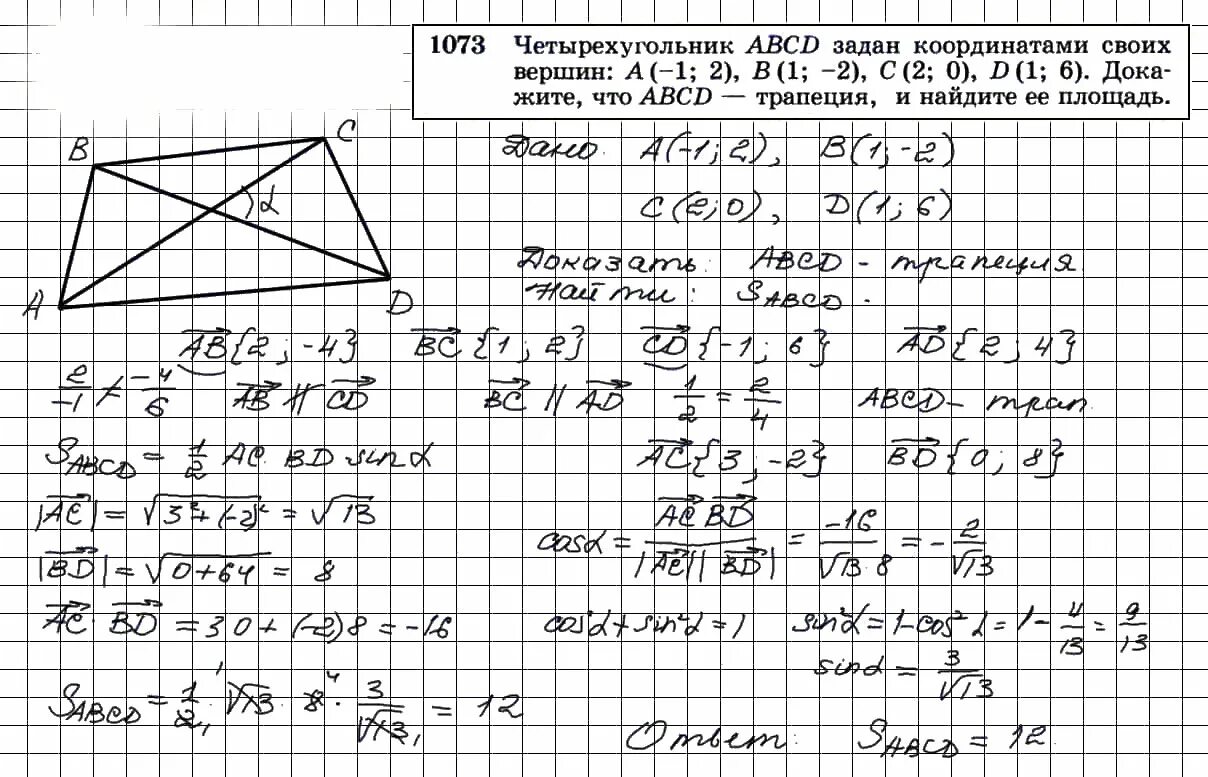 1073 Четырехугольник ABCD задан координатами своих
вершин: A(−1; 2), B(1; −2), C(2; 0), D(1; 6). Дока-
жите, что ABCD — трапеция, и найдите ее площадь.
B C α A D
Дано: A(-1; 2), B(1; -2)
C(2; 0), D(1; 6)
Доказать: ABCD - трапеция
Найти: S_ABCD -
AB{2; -4} BC{1; 2} CD{-1; 6} AD{2; 4}
2/-1 ≠ -4/6 AB ∦ CD BC || AD 1/2 = 2/4 ABCD - трап.
S_ABCD = 1/2 AC BD sinα AC{3; -2} BD{0; 8}
|AC| = √(3²+(-2)²) = √13
cosα = AC BD / |AC||BD| = -16/√13·8 = -2/√13
|BD| = √(0+64) = 8
AC · BD = 3·0 + (-2)8 = -16 cos²α + sin²α = 1 sin²α = 1-cos²α = 1 - 4/13 = 9/13
sinα = 3/√13
S_ABCD = 1/2 · √13 · 8 · 3/√13 = 12
Ответ: S_ABCD = 12